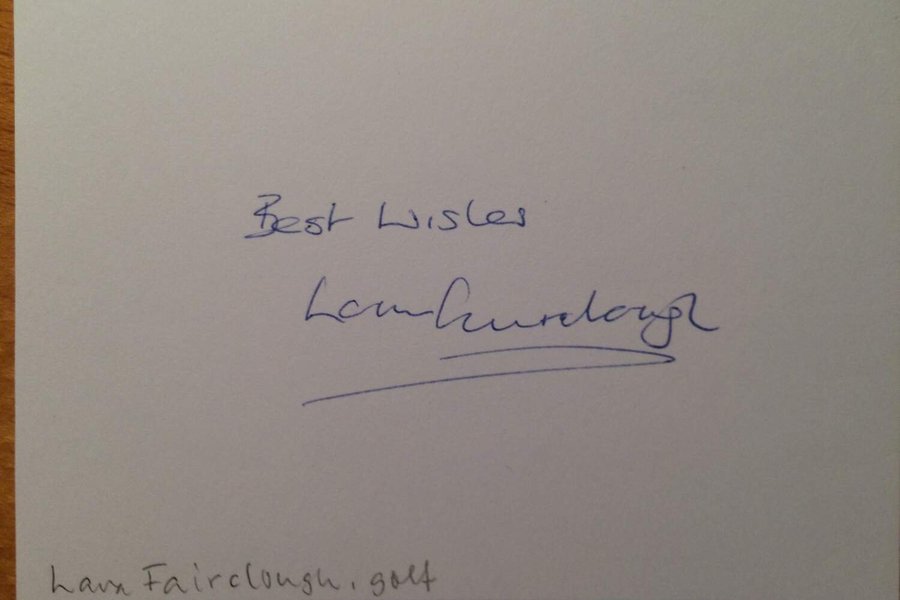 Best Wishes
Lora Fairclough
Lora Fairclough, golf